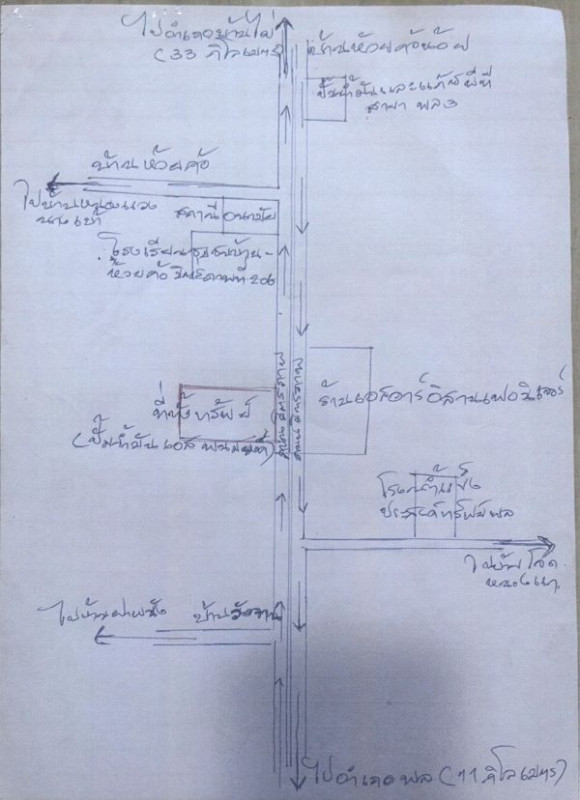 ไปอำเภอบ้านไผ่
(33 กิโลเมตร)
บ้านห้วยค้อน้อย
ปั๊มน้ำมันและแก๊สพีที
สาขา พล 3
บ้านห้วยค้อ
ไปบ้านหนองแวง
นางเบ้า
สถานีอนามัย
โรงเรียนชุมชนบ้าน-
ห้วยค้อ มิตรภาพที่ 206
ถนนมิตรภาพ
ถนนมิตรภาพ
ที่ตั้งทรัพย์
(ปั๊มน้ำมัน เอส
ร้านเอสอาร์อิสานเฟอร์นิเจอร์
โรงน้ำแข็ง
ประสิทธิ์ทรัพย์พล
ไปบ้านโจด
หนองแก
ไปบ้าน
บ้านวังจาน
ไปอำเภอพล (11 กิโลเมตร)